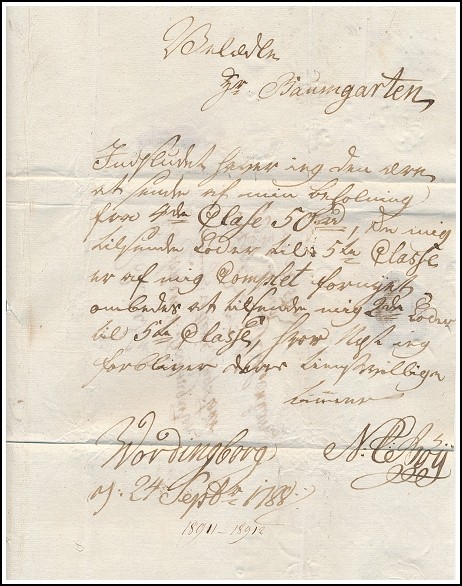 Velædle
Hr Baumgarten
Indsludet haver ieg den ære
at sende af min befolning
fra 4de Classe 50 rd, De mig
tilsende Loder til 5te Classe
er af mig Complet fornyet
ombedes at tilsende mig 2de Loder
til 5te Classe, hvor Nest ieg
forbliver deres tienstvillige
tiener
Wordingborg
d: 24 Septbr 1788.
18911 - 18912